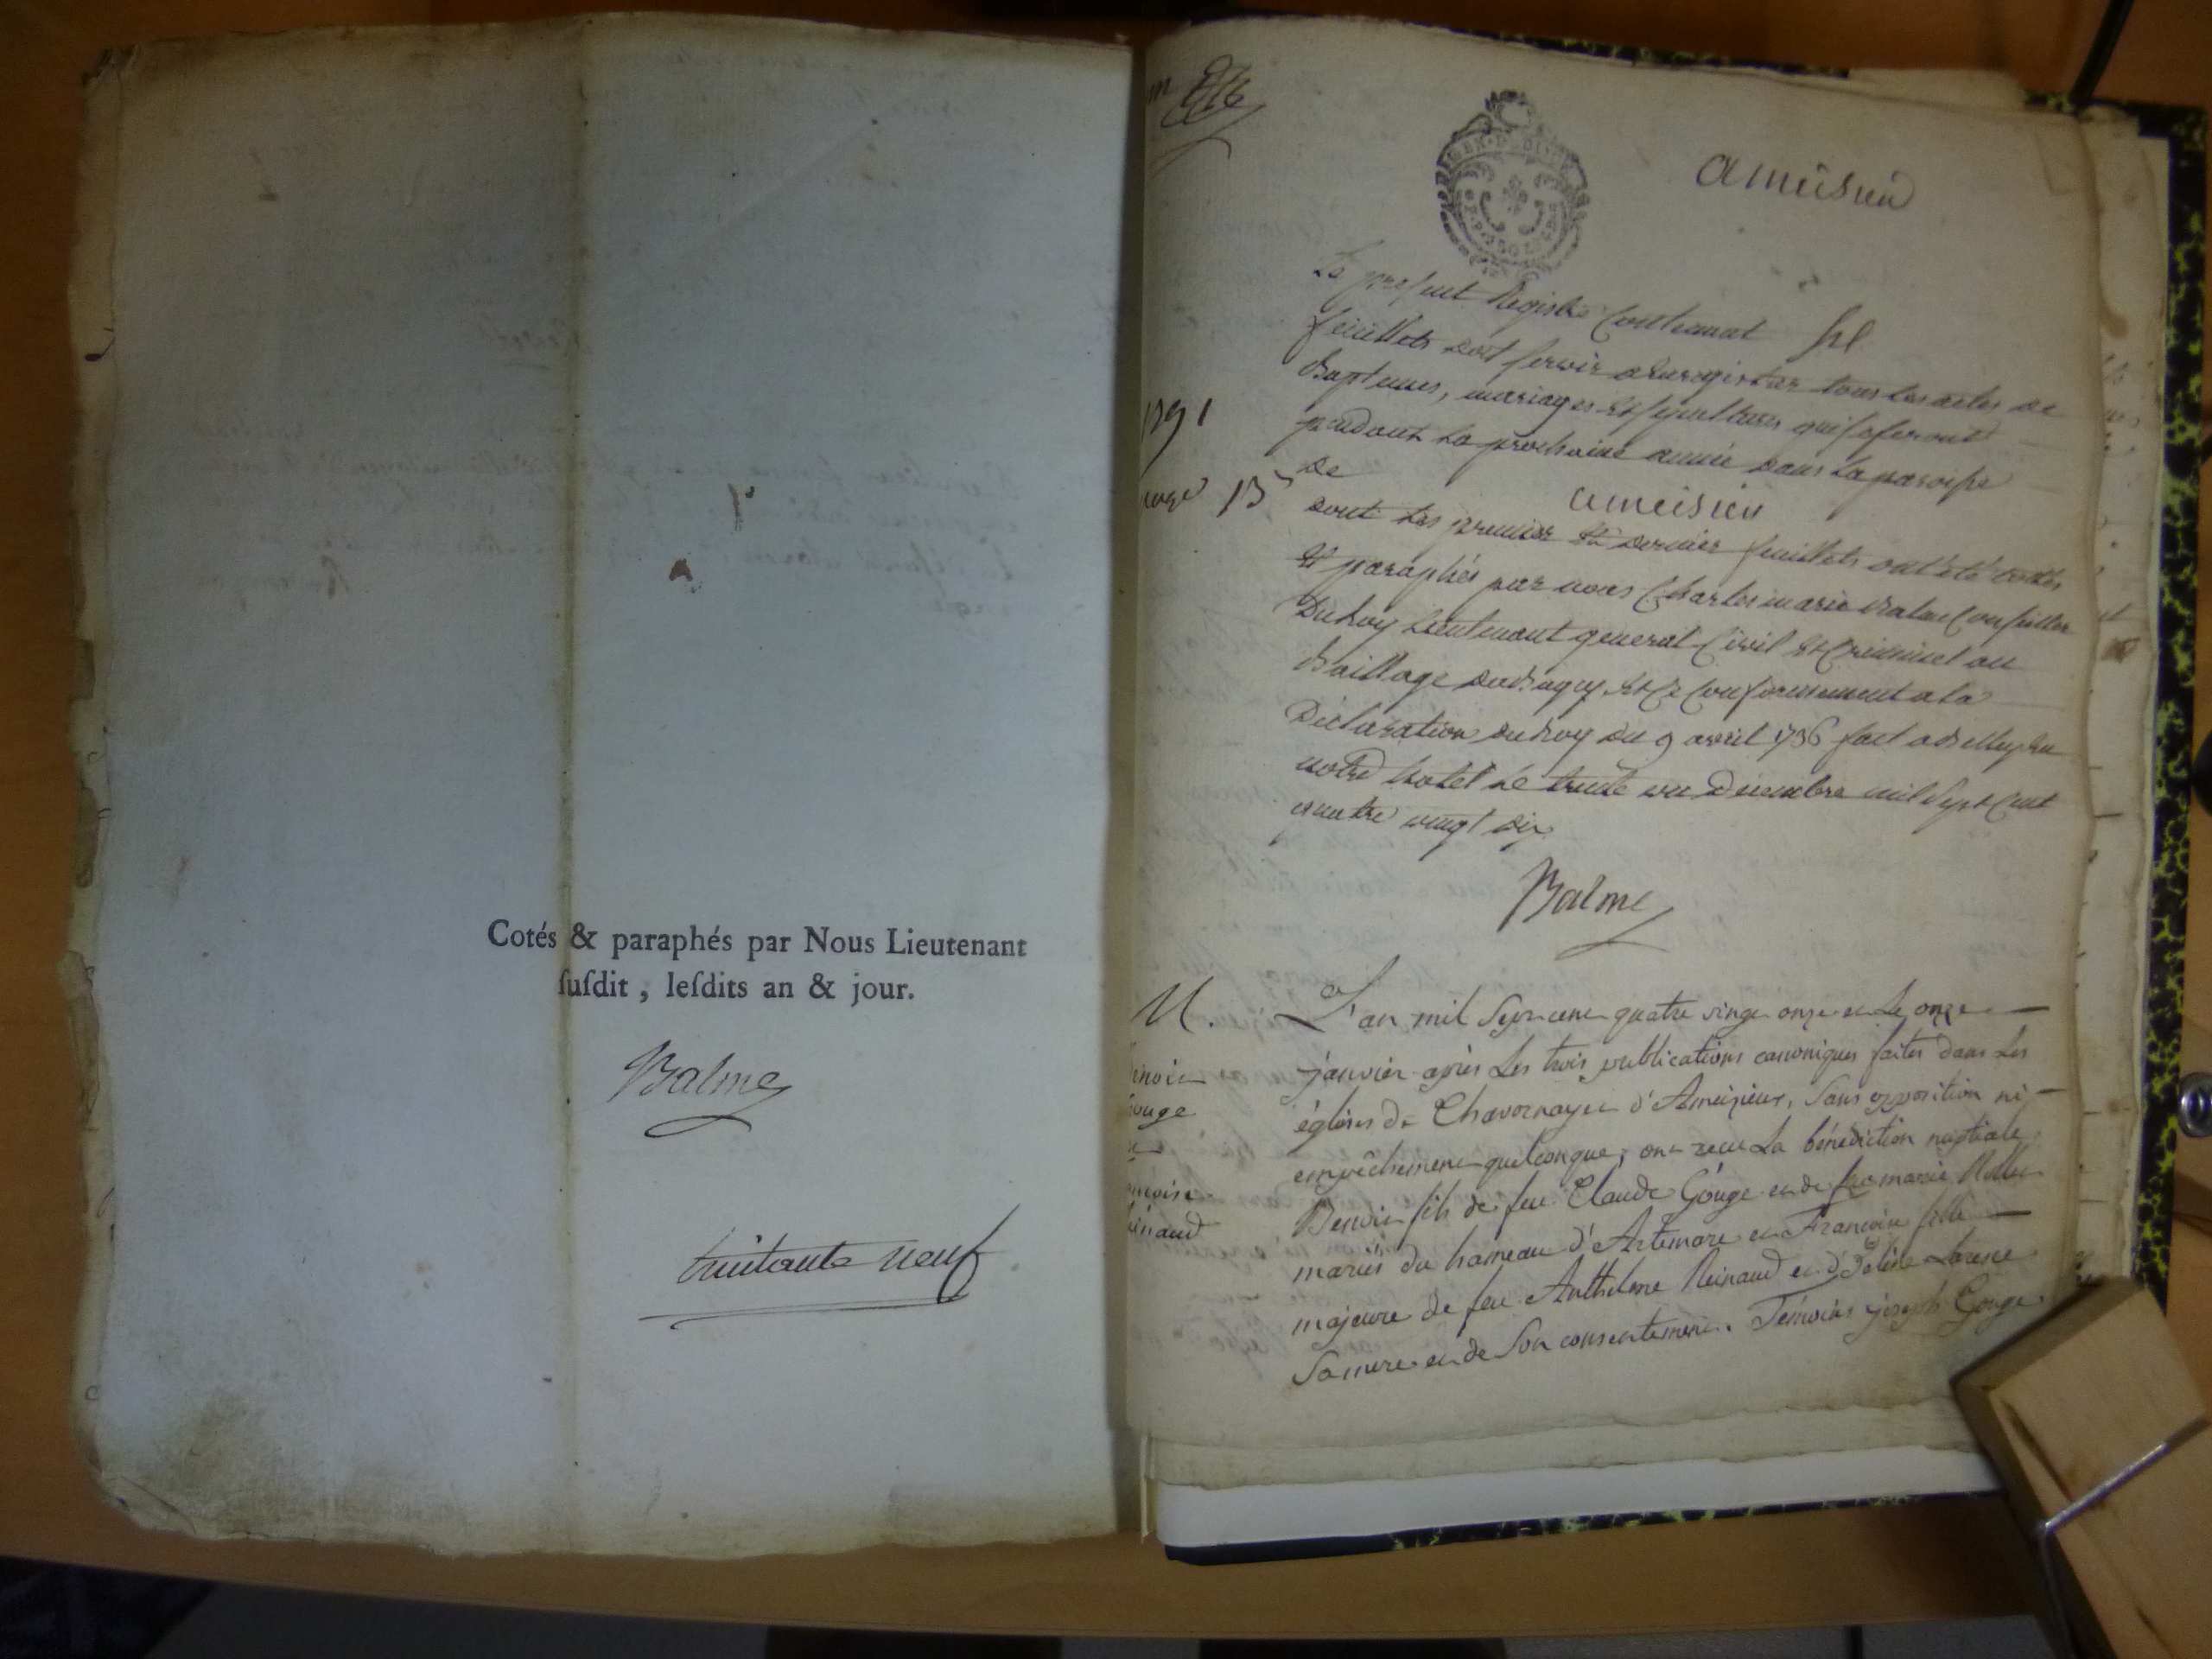 Cotés & paraphés par Nous Lieutenant
ſuſdit, leſdits an & jour.
Balme
huitante neuf
ameisieu
Le preſent Registre Contenant six
feüillets doit ſervir a Enregistrer tous les actes de
Baptemes, mariages Et ſepultures qui ſe feront
pendant La prochaine année dans La paroiſse
De
ameisieu
1791
dont Les premier Et dernier feuillets ont été cottés
Et paraphés par nous Charles marie Balme Conſeiller
Du Roy Lieutenant general Civil Et Criminel au
Bailliage du Bugey, Et Ce Conformement a la
Déclaration du Roy du 9 avril 1736 fait a Belley en
notre hotel Le trente un Decembre mil Sept Cent
quatre vingt dix
Balme
M.
L'an mil Sept cent quatre vingt onze et Le onze
janvier après Les trois publications canoniques faites dans Les
églises de Chavornay et d'Ameizieu, Sans opposition ni
empêchement quelconque, ont recu La bénédiction nuptiale
Benoit fils de feu Claude Gouge et de marie
mariés du hameau d'Artemare et Françoise fille
majeure de feu Anthelme Reinaud et d'
Sa mere et de Son consentement. Témoins joseph Gouge